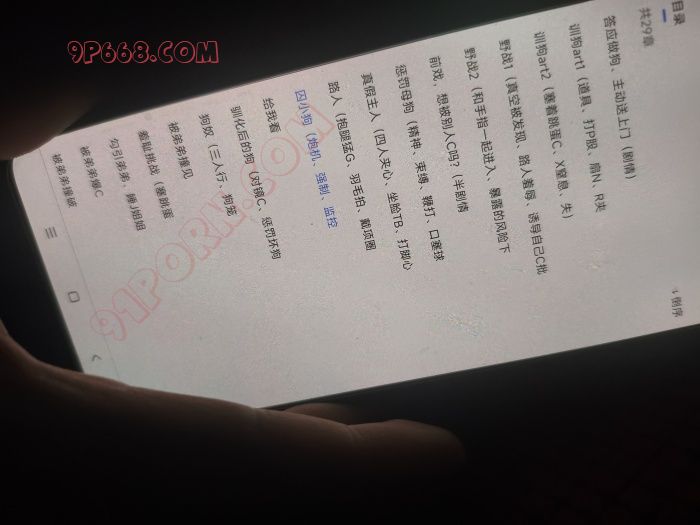 9P668.COM
目录
共29章
倒序
答应做狗、主动送上门（剧情）
训狗art1（道具、打P股、扇N、R夹
训狗art2（塞着跳蛋C、X窒息、失）
野战1（真空被发现、路人羞辱、诱导自己C批
野战2（和手指一起进入、暴露的风险下
前戏，想被别人C吗？（半剧情
惩罚母狗（精神、束缚、鞭打、口塞球
真假主人（四人夹心、坐脸TB、打脚心
路人（抱腿猛G、羽毛拍、戴项圈
囚小狗（炮机、强制、监控
给我看
驯化后的狗（对镜C、惩罚环狗
狗奴（三人行、狗笼
被弟弟撞见
羞耻挑战（塞跳蛋
勾引弟弟、睡J姐姐
被弟弟爆C
被弟弟撞破
91PORN.COM